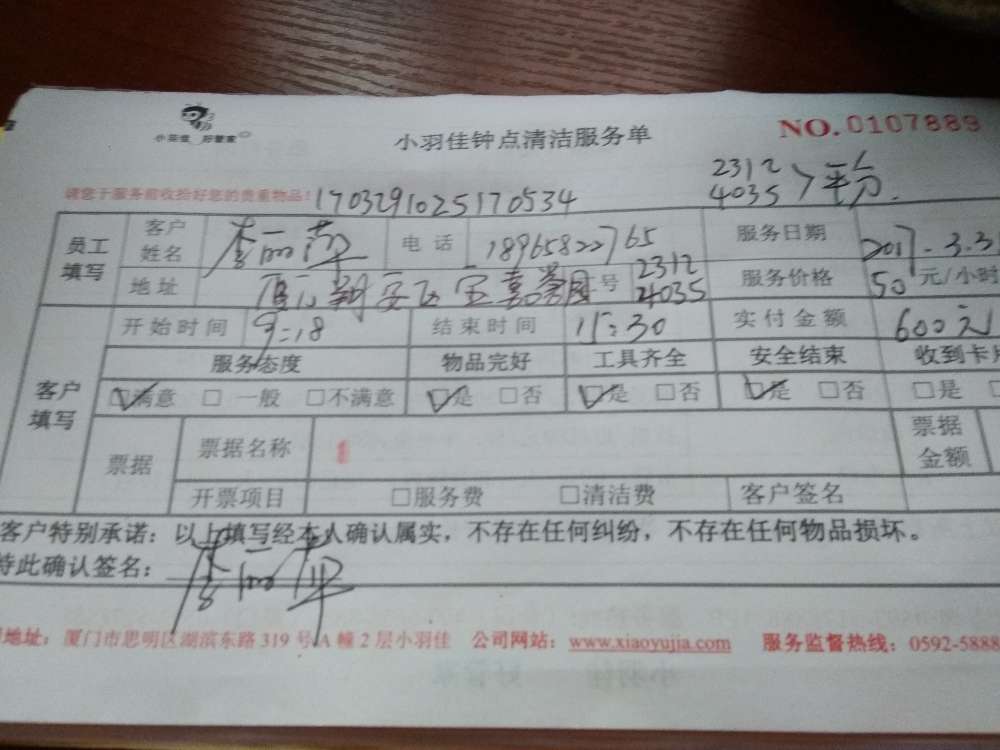 小羽佳 好管家
小羽佳钟点清洁服务单
NO.0107889
2312
4035 > 平分.
请您于服务前收拾好您的贵重物品! 1703291025170534
员工填写 客户姓名 李丽萍 电话 18965822765 服务日期 2017.3.3
地址 厦门翔安区宝嘉誉园 号 2312 4035 服务价格 50元/小时
开始时间 9:18 结束时间 15:30 实付金额 600元
客户填写 服务态度 物品完好 工具齐全 安全结束 收到卡片
☑满意 □一般 □不满意 ☑是 □否 ☑是 □否 ☑是 □否 □是
票据 票据名称 1 票据金额
开票项目 □服务费 □清洁费 客户签名
客户特别承诺：以上填写经本人确认属实，不存在任何纠纷，不存在任何物品损坏。
特此确认签名： 李丽萍
地址：厦门市思明区湖滨东路 319 号 A 幢 2 层小羽佳 公司网站：www.xiaoyujia.com 服务监督热线：0592-5888